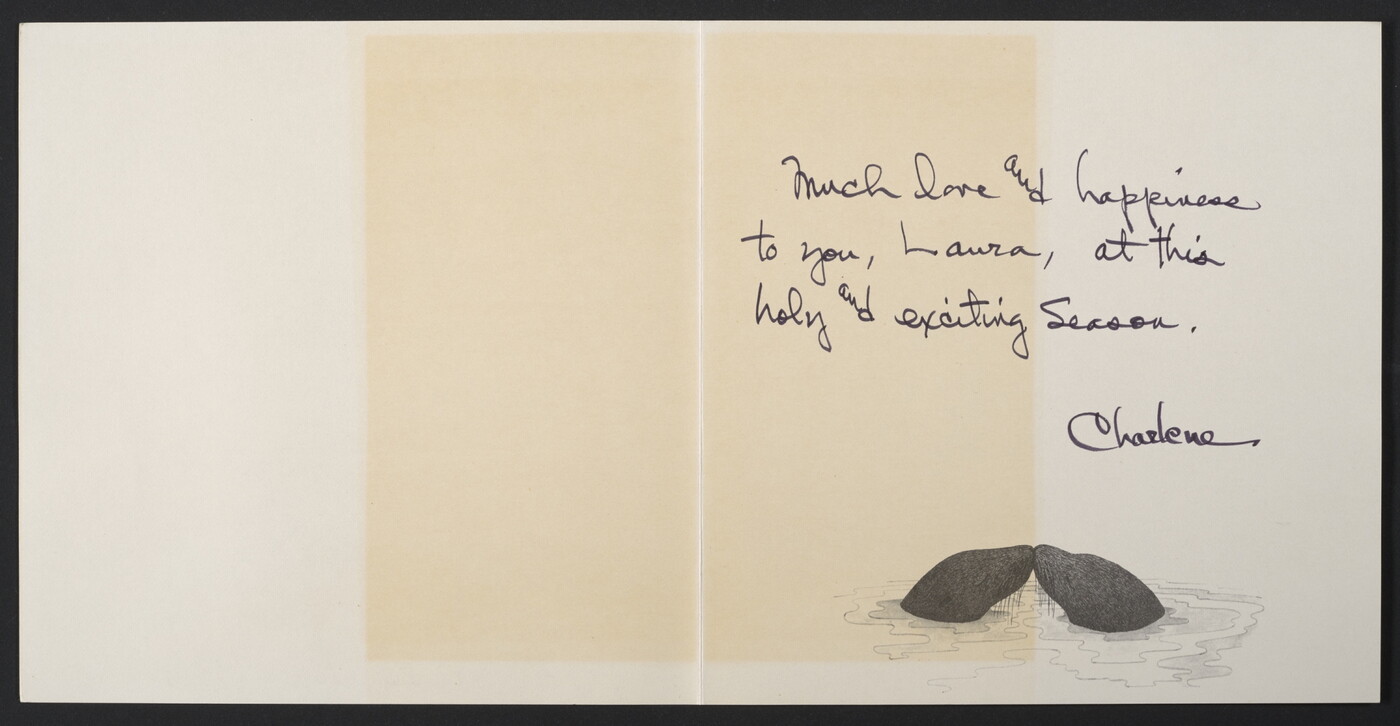 Much love and happiness
to you, Laura, at this
holy and exciting Season.
Charlene.